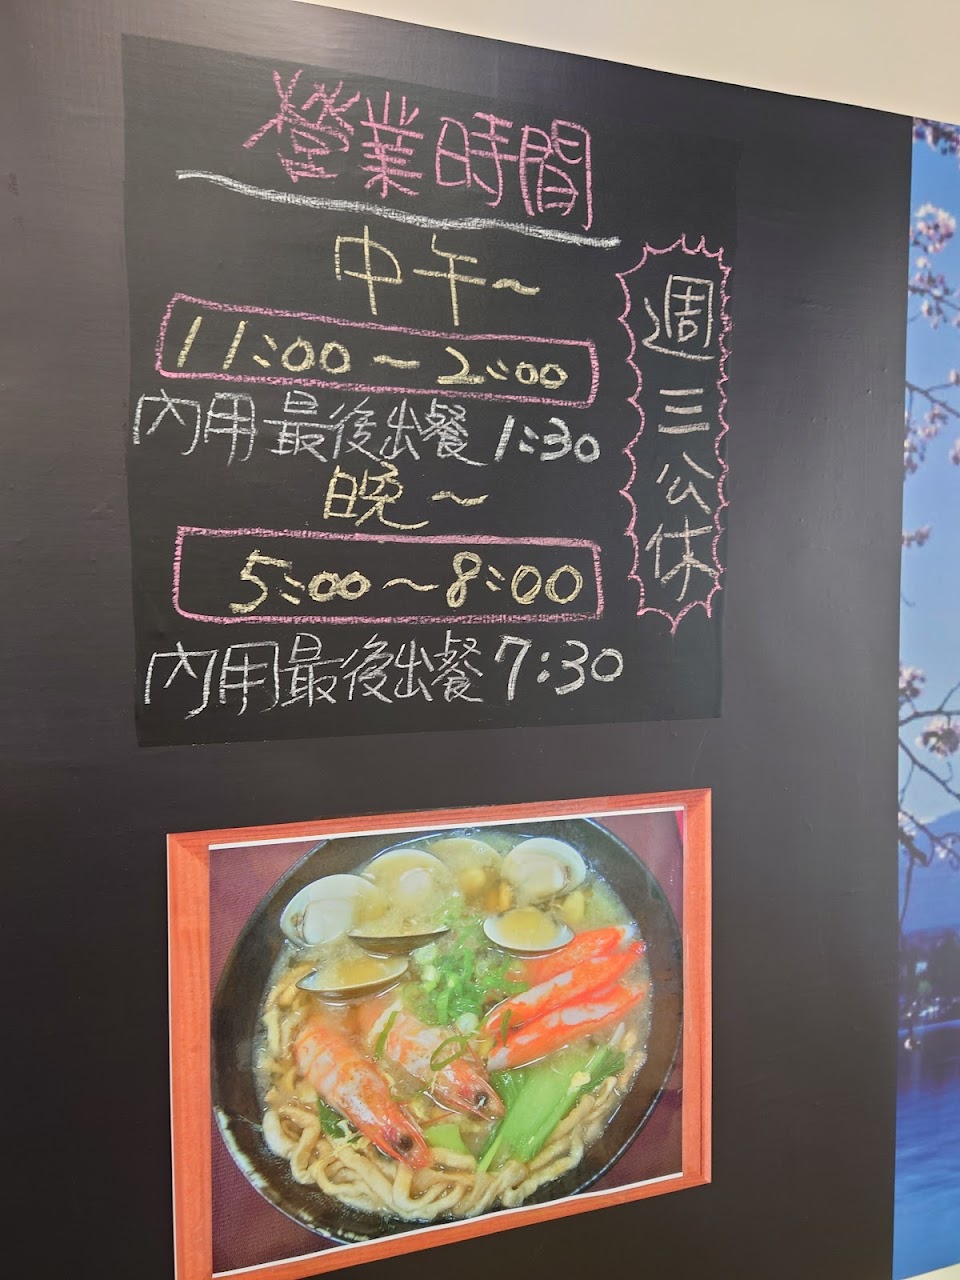 營業時間
中午~
11:00~2:00
內用最後出餐1:30
晚~
5:00~8:00
內用最後出餐7:30
週三公休